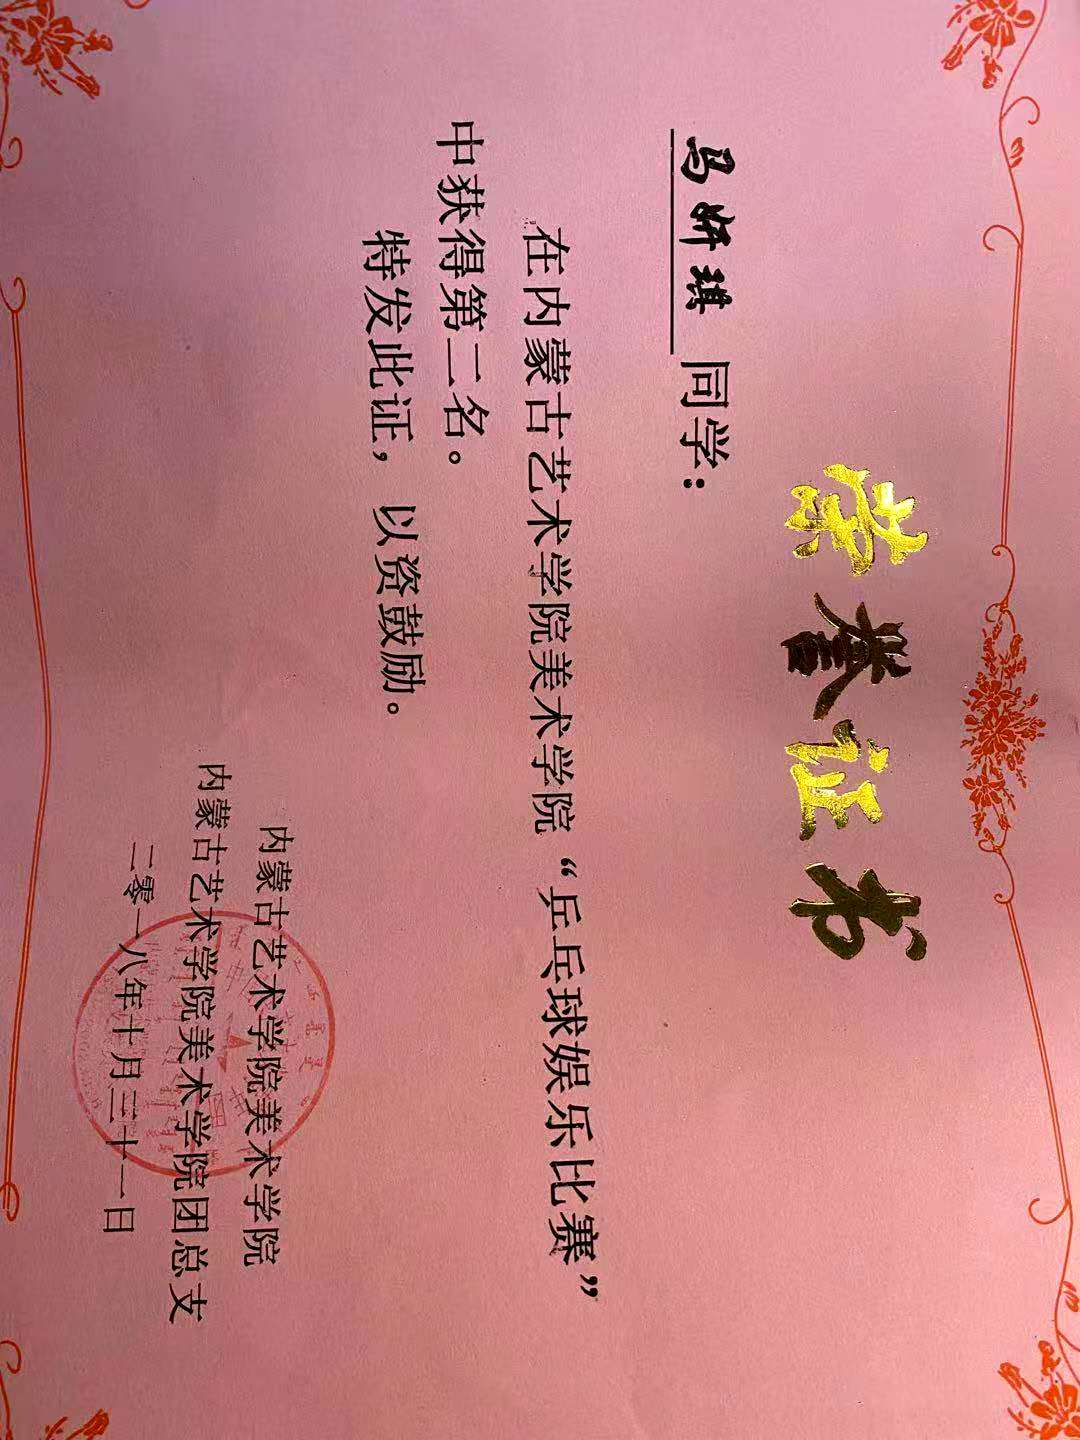 荣誉证书
马妍琪 同学：
在内蒙古艺术学院美术学院“乒乓球娱乐比赛”
中获得第二名。
特发此证，以资鼓励。
内蒙古艺术学院美术学院
内蒙古艺术学院美术学院团总支
二零一八年十月三十一日